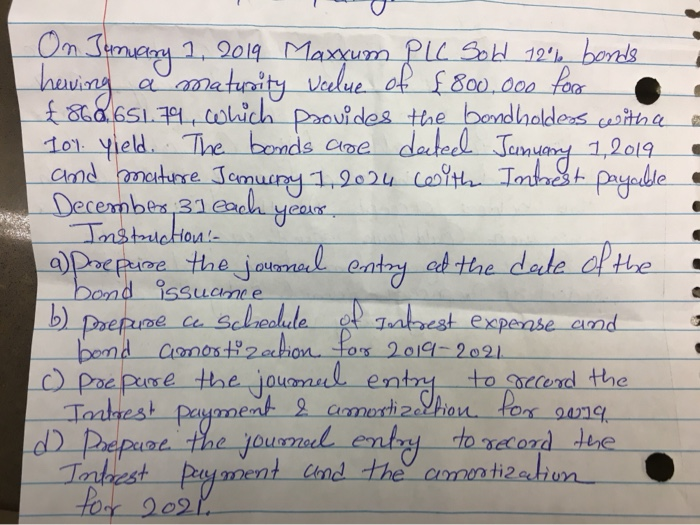 On January 1, 2019 Maxxum PLC Sold 12% bonds
having a maturity value of £800,000 for
£860,651.79, which provides the bondholders with a
10% yield. The bonds are dated January 1, 2019
and mature January 1, 2024 with Intrest payable
December, 31 each year.
Instruction:-
a) Prepare the journal entry at the date of the
bond issuance
b) prepare a schedule of Intrest expense and
bond amortization for 2019-2021
c) prepare the journal entry to record the
Intrest payment & amortization for 2019.
d) Prepare the journal entry to record the
Intrest payment and the amortization
for 2021.